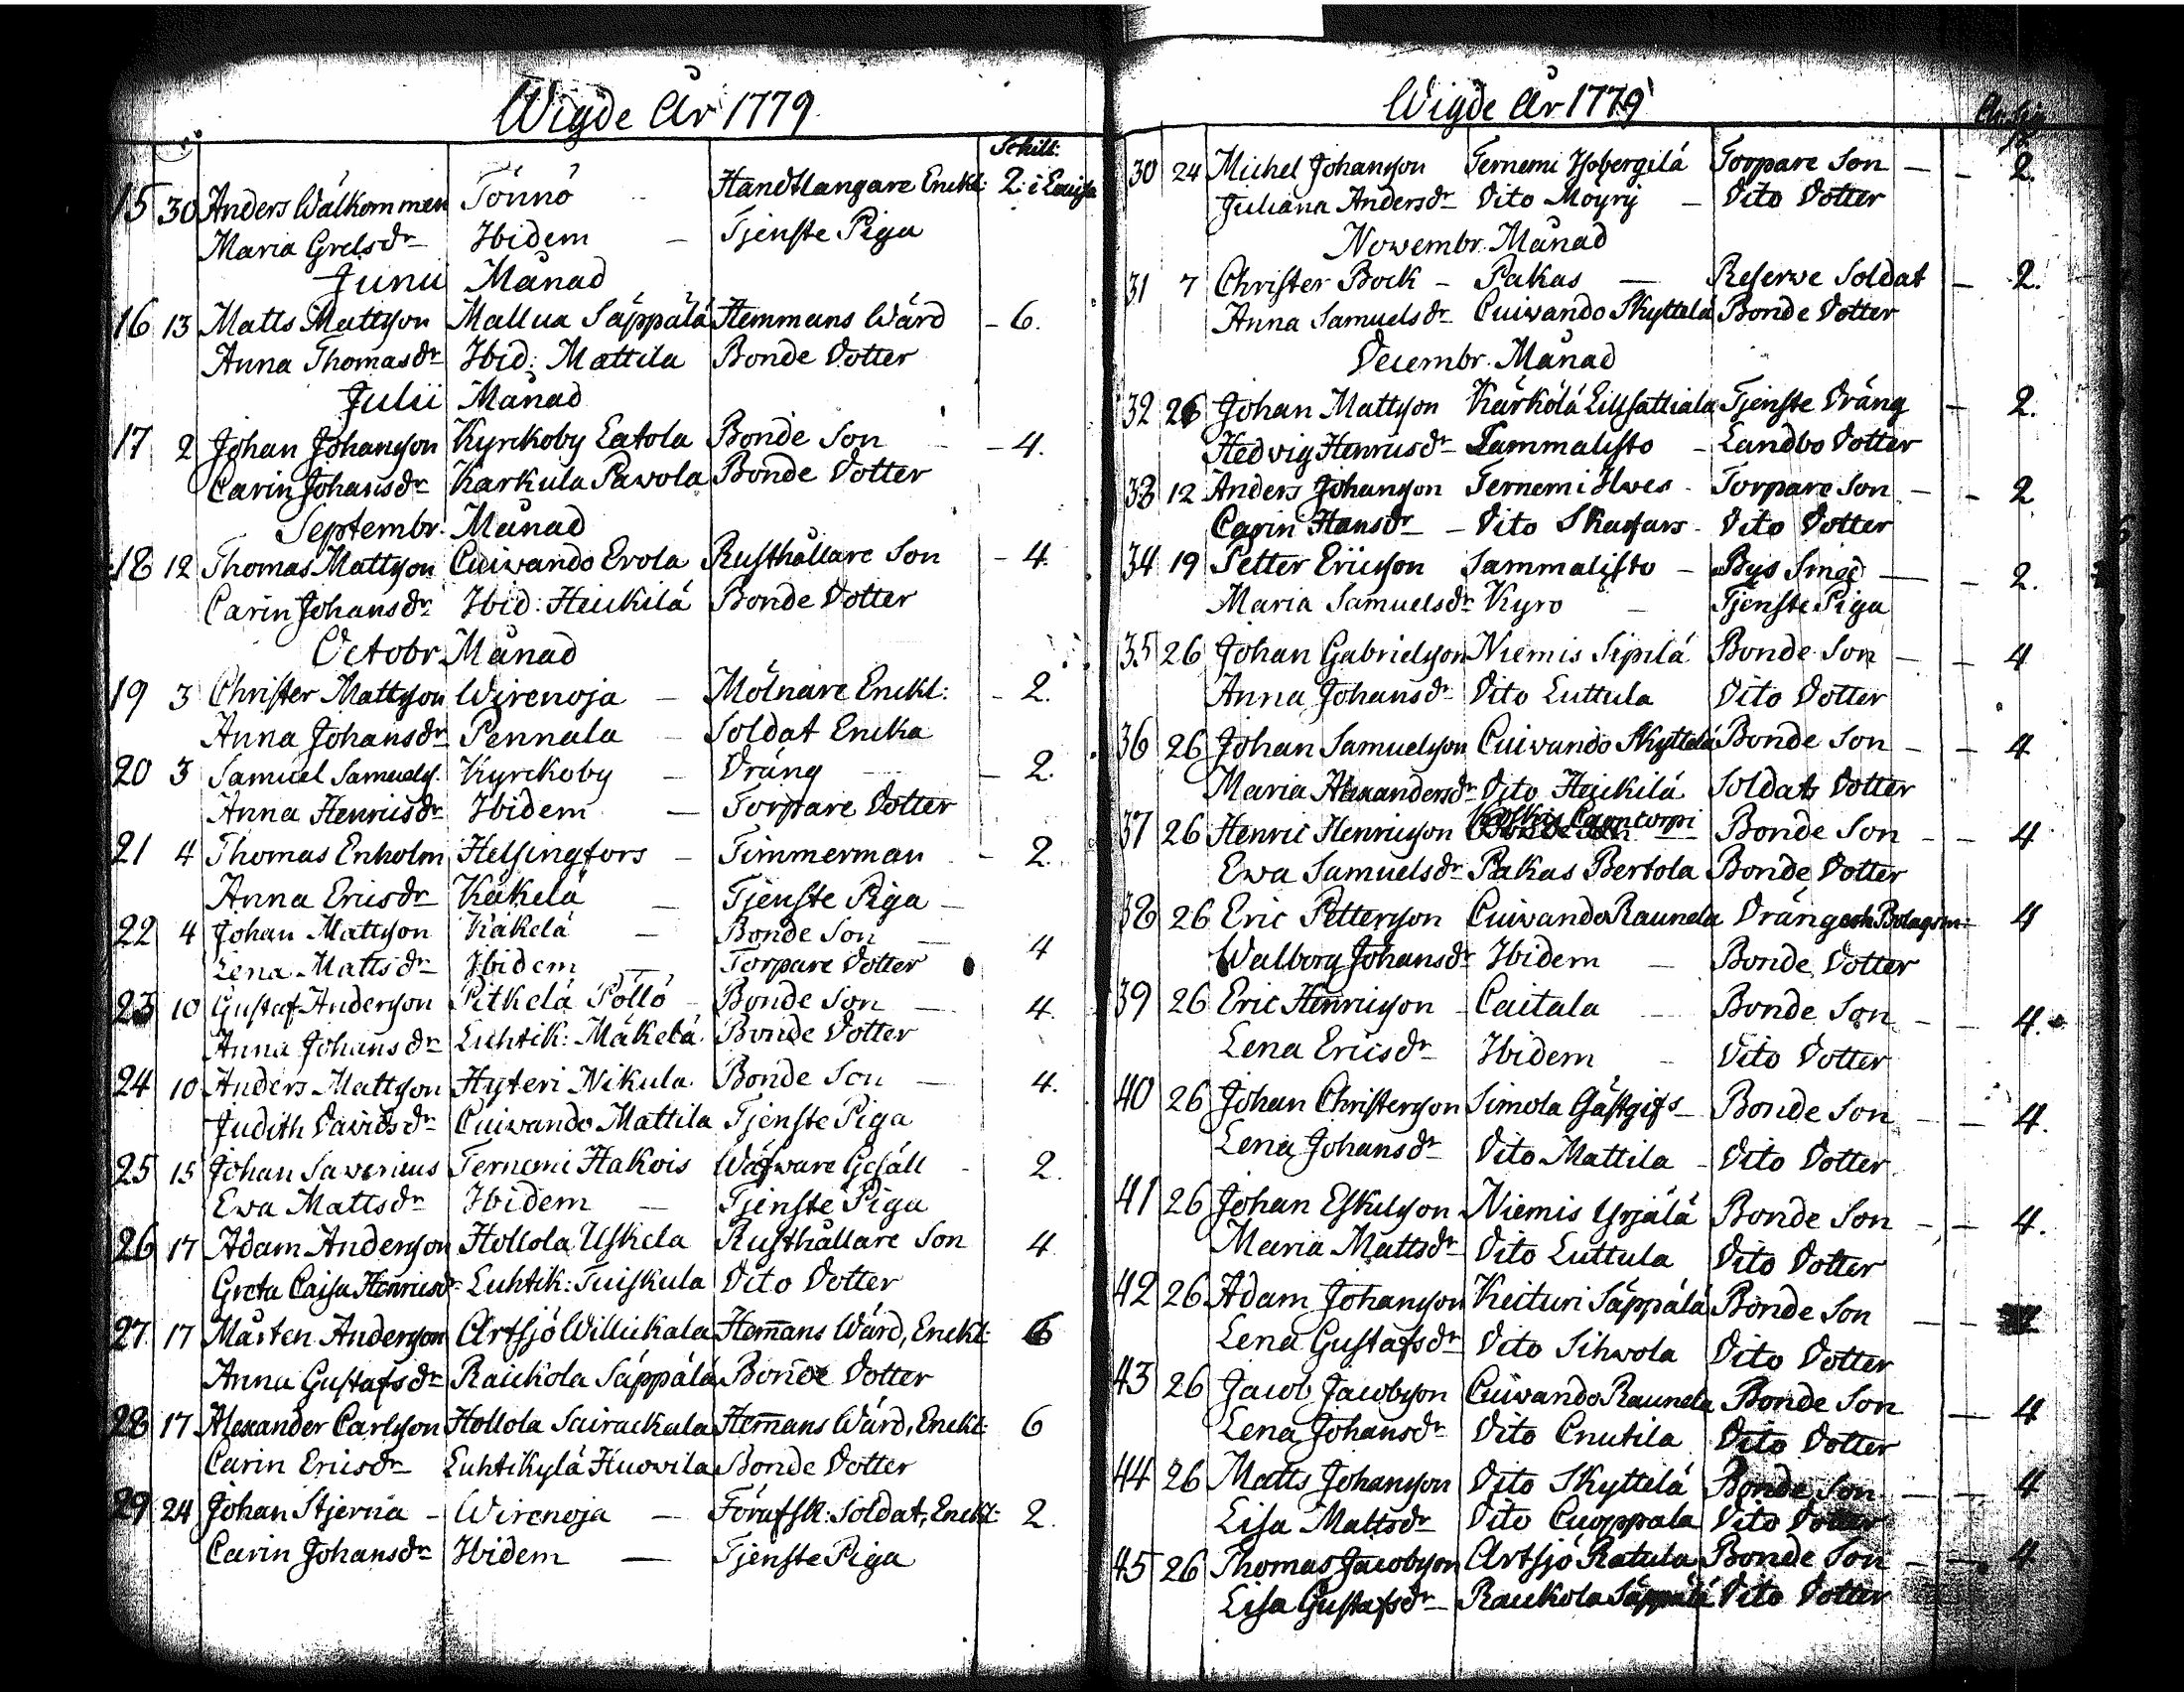 Wigde År 1779
Schill:
15 30 Anders Wälkommen Tönnö Handtlangare Enckl: 2: i Lovisa
Maria Grelsdr Ibidem - Tjenste Piga
Junii Månad
16 13 Matts Mattsson Mallua Säppälä Hemmans Wärd - 6.
Anna Thomasdr Ibid: Mattila Bonde Dotter
Julii Månad
17 2 Johan Johansson Kyrckoby Latola Bonde Son - 4.
Carin Johansdr Karkula Pawola Bonde Dotter
Septembr. Månad
18 12 Thomas Mattsson Cuivando Erola Rusthållare Son - 4.
Carin Johansdr Ibid: Heickilä Bonde Dotter
Octobr. Månad
19 3 Christer Mattsson Wirenoja - Mölnare Enckl: - 2.
Anna Johansdr Pennala - Soldat Encka
20 3 Samuel Samuels. Kyrckoby - Dräng - 2.
Anna Henricsdr Ibidem - Torpare Dotter
21 4 Thomas Enholm Helsingfors - Timmerman - 2.
Anna Ericsdr Käkelä - Tjenste Piga -
22 4 Johan Mattsson Käkelä - Bonde Son - 4
Lena Mattsdr Ibidem - Torpare Dotter
23 10 Gustaf Andersson Pitkelä Pöllö - Bonde Son - 4.
Anna Johansdr Luhtik: Mäkelä Bonde Dotter
24 10 Anders Mattsson Hyteri Nikula Bonde Son - 4.
Judith Davidsdr Cuivando Mattila Tjenste Piga
25 15 Johan Savenius Ternemi Hakois Wäfware Gesäll - 2.
Ewa Mattsdr Ibidem - Tjenste Piga
26 17 Adam Andersson Hollola Uskela Rusthållare Son 4
Greta Caisa Henricsdr Luhtik: Tuiskula Dito Dotter
27. 17 Mårten Andersson Artsjö Willickala Hemans Wärd, Enckl: 6
Anna Gustafsdr Rauckola Säppälä Bonde Dotter
28 17 Alexander Carlsson Hollola Sairackala Hemans Wärd, Enckl: 6
Carin Ericsdr Luhtikylä Huovila Bonde Dotter
29 24 Johan Stjerna - Wirenoja - Förafsk: Soldat, Enckl: 2.
Carin Johansdr Ibidem - Tjenste Piga
Wigde År 1779
30 24 Michel Johansson Ternemi Isobergilä Torpare Son - 2.
Juliana Andersdr Dito Möyry - Dito Dotter
Novembr. Månad
31 7 Christer Bock - Pakas - Reserve Soldat - 2.
Anna Samuelsdr Cuivando Skyttelä Bonde Dotter
Decembr. Månad
32 26 Johan Mattsson Kärkölä Lillsattiala Tjenste Dräng - 2.
Hedvig Henricsdr Sammalisto - Landbo Dotter
33 12 Anders Johansson Ternemi Ilves - Torpare Son - 2
Carin Hansdr - Dito Skaffars - Dito Dotter
34 19 Petter Ericsson Sammalisto - Bys Smed - 2.
Maria Samuelsdr Kyro - Tjenste Piga
35 26 Johan Gabrielsson Niemis Sipilä Bonde Son - 4
Anna Johansdr Dito Luttula Dito Dotter
36 26 Johan Samuelsson Cuivando Skyttelä Bonde Son - 4
Maria Alexandersdr Dito Heickilä Soldats Dotter
37 26 Henric Henricsson Koskis Bonde Son - 4
Ewa Samuelsdr Pakas Bertola Bonde Dotter
38 26 Eric Pettersson Cuivando Raunela Dräng och Bolagsm: 4
Walborg Johansdr Ibidem - Bonde Dotter
39 26 Eric Henricsson - Caitala Bonde Son - 4.
Lena Ericsdr Ibidem - Dito Dotter
40 26 Johan Christersson Simola Gästgifs - Bonde Son - 4.
Lena Johansdr Dito Mattila - Dito Dotter
41 26 Johan Eskulsson Niemis Yrjälä Bonde Son - 4.
Maria Mattsdr Dito Luttula Dito Dotter
42 26 Adam Johansson Keituri Säppälä Bonde Son -
Lena Gustafsdr Dito Sihvola Dito Dotter
43 26 Jacob Jacobsson Cuivando Raunela Bonde Son - 4
Lena Johansdr Dito Cnutila Dito Dotter
44 26 Matts Johansson Dito Skyttelä Bonde Son - 4
Lisa Mattsdr Dito Cuoppala Dito Dotter
45 26 Thomas Jacobsson Artsjö Ratula Bonde Son - 4
Lisa Gustafsdr - Rauckola Säppälä Dito Dotter